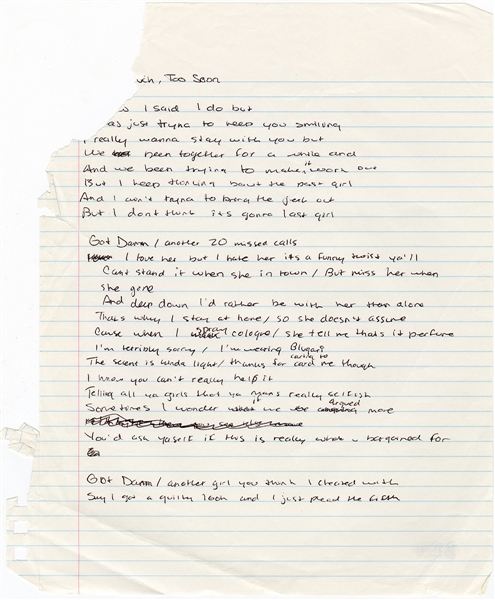 uch, Too Soon
I said I do but
as just tryna to keep you smiling
I really wanna stay with you but
We been together for a while and
And we been trying to make it work out
But I keep thinking bout the past girl
And I ain't tryna to bring the jerk out
But I dont think its gonna last girl
Got Damm / another 20 missed calls
I love her but I hate her its a funny twist ya'll
Cant stand it when she in town / But miss her when
she gone
And deep down I'd rather be with her than alone
Thats why I stay at home / so she doesn't assume
Cause when I spray cologne / she tell me thats it perfume
I'm terribly sorry / I'm wearing Blvgari
The scent is kinda light / thanks for caring to me though
I know you can't really help it
Telling all ya girls that ya mans really selfish
Sometimes I wonder if we argued more
You'd ask yaself if this is really what u bargained for
Got Damm / another girl you think I cheated with
Say I got a guilty look and I just plead the fifth